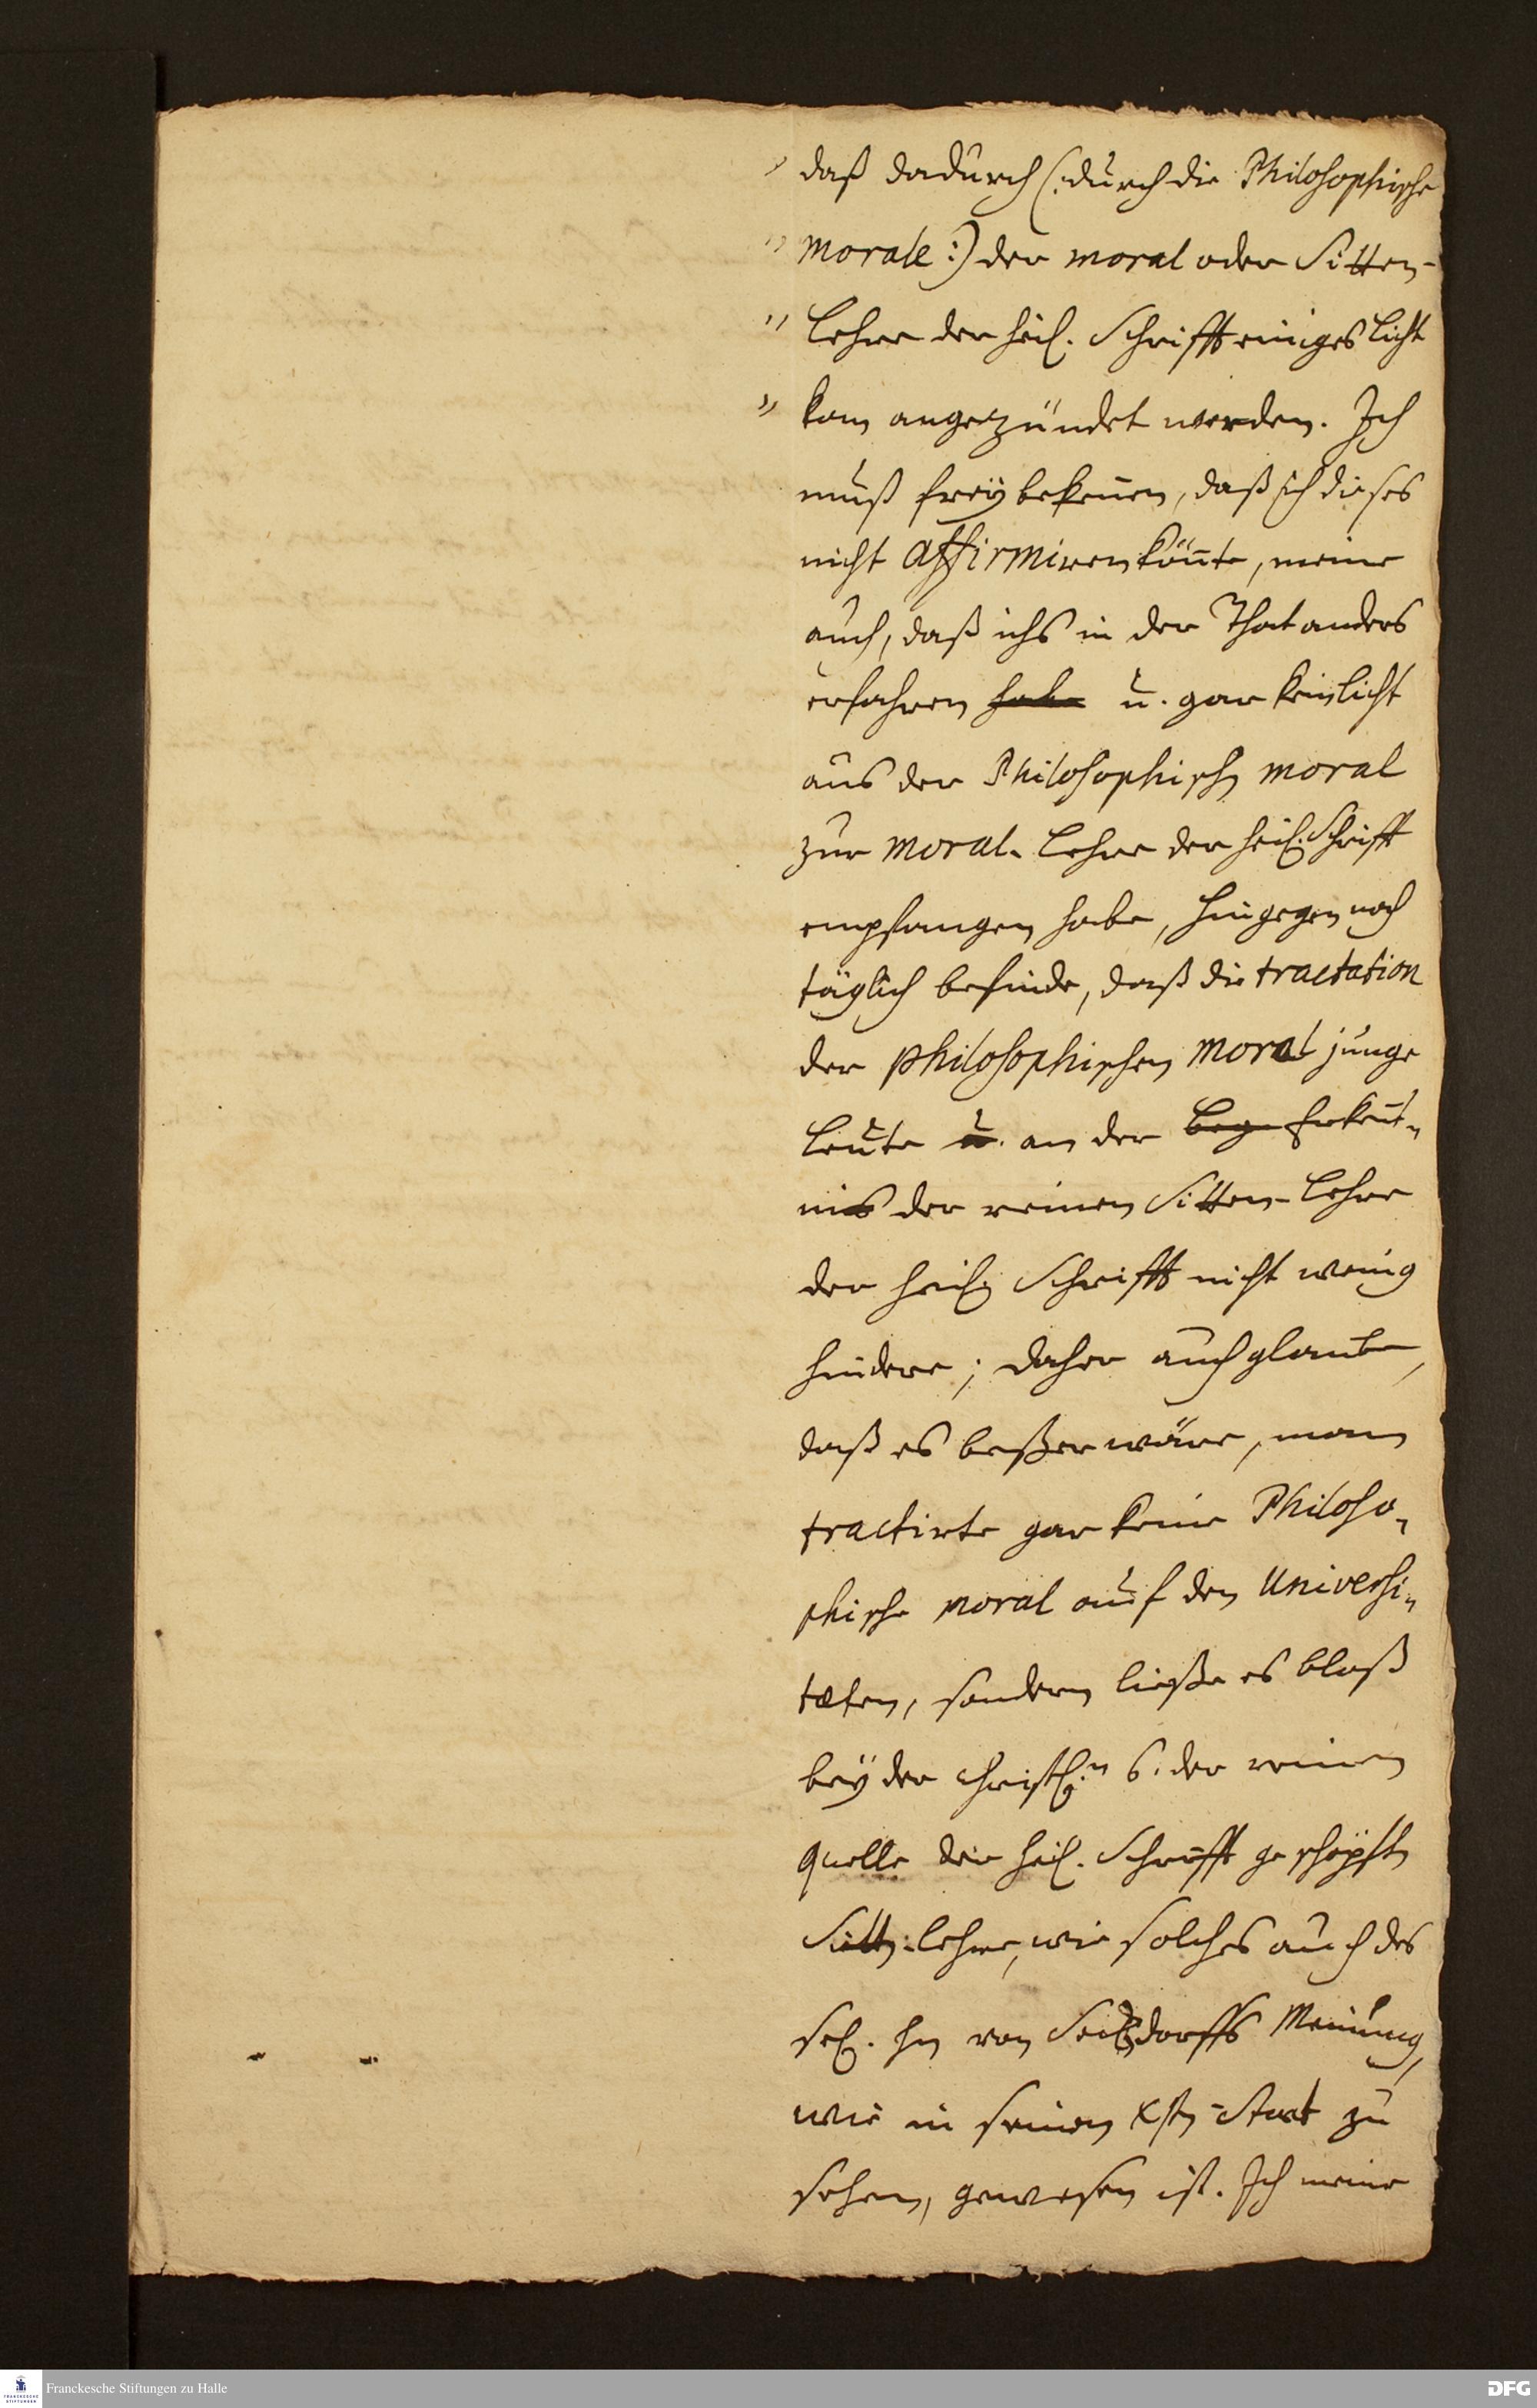 " daß dadurch (: durch die Philosophische
" morale :) der moral oder Sitten-
" Lehre der heil. Schrifft einiges Licht
" kan angezündet werden. Ich
muß frey bekeñen, daß ich dieses
nicht affirmiren köñte, meine
auch, daß ichs in der That anders
erfahren habe u. gar kein Licht
aus der Philosophischen moral
zur moral-Lehre der heil. Schrifft
empfangen habe, hingegen noch
täglich befinde, daß die tractation
der philosophischen moral junge
Leute u. an der Erkeñt-
nis der reinen Sitten-Lehre
der heil. Schrifft nicht wenig
hindere; daher auch glaube,
daß es beßer wäre, man
tractirte gar keine Philoso-
phische moral auf den Universi-
tæten, sondern ließe es bloß
bey der christl.n der reinen
Quelle der heil. Schrifft geschöpften
Sitten-Lehre, wie solches auch des
sel. Hn von Seckendorffs Meinung,
wie in seinen Xsten-Staat zu
sehen, gewesen ist. Ich meine
Franckesche Stiftungen zu Halle
FRANCKESCHE STIFTUNGEN
DFG